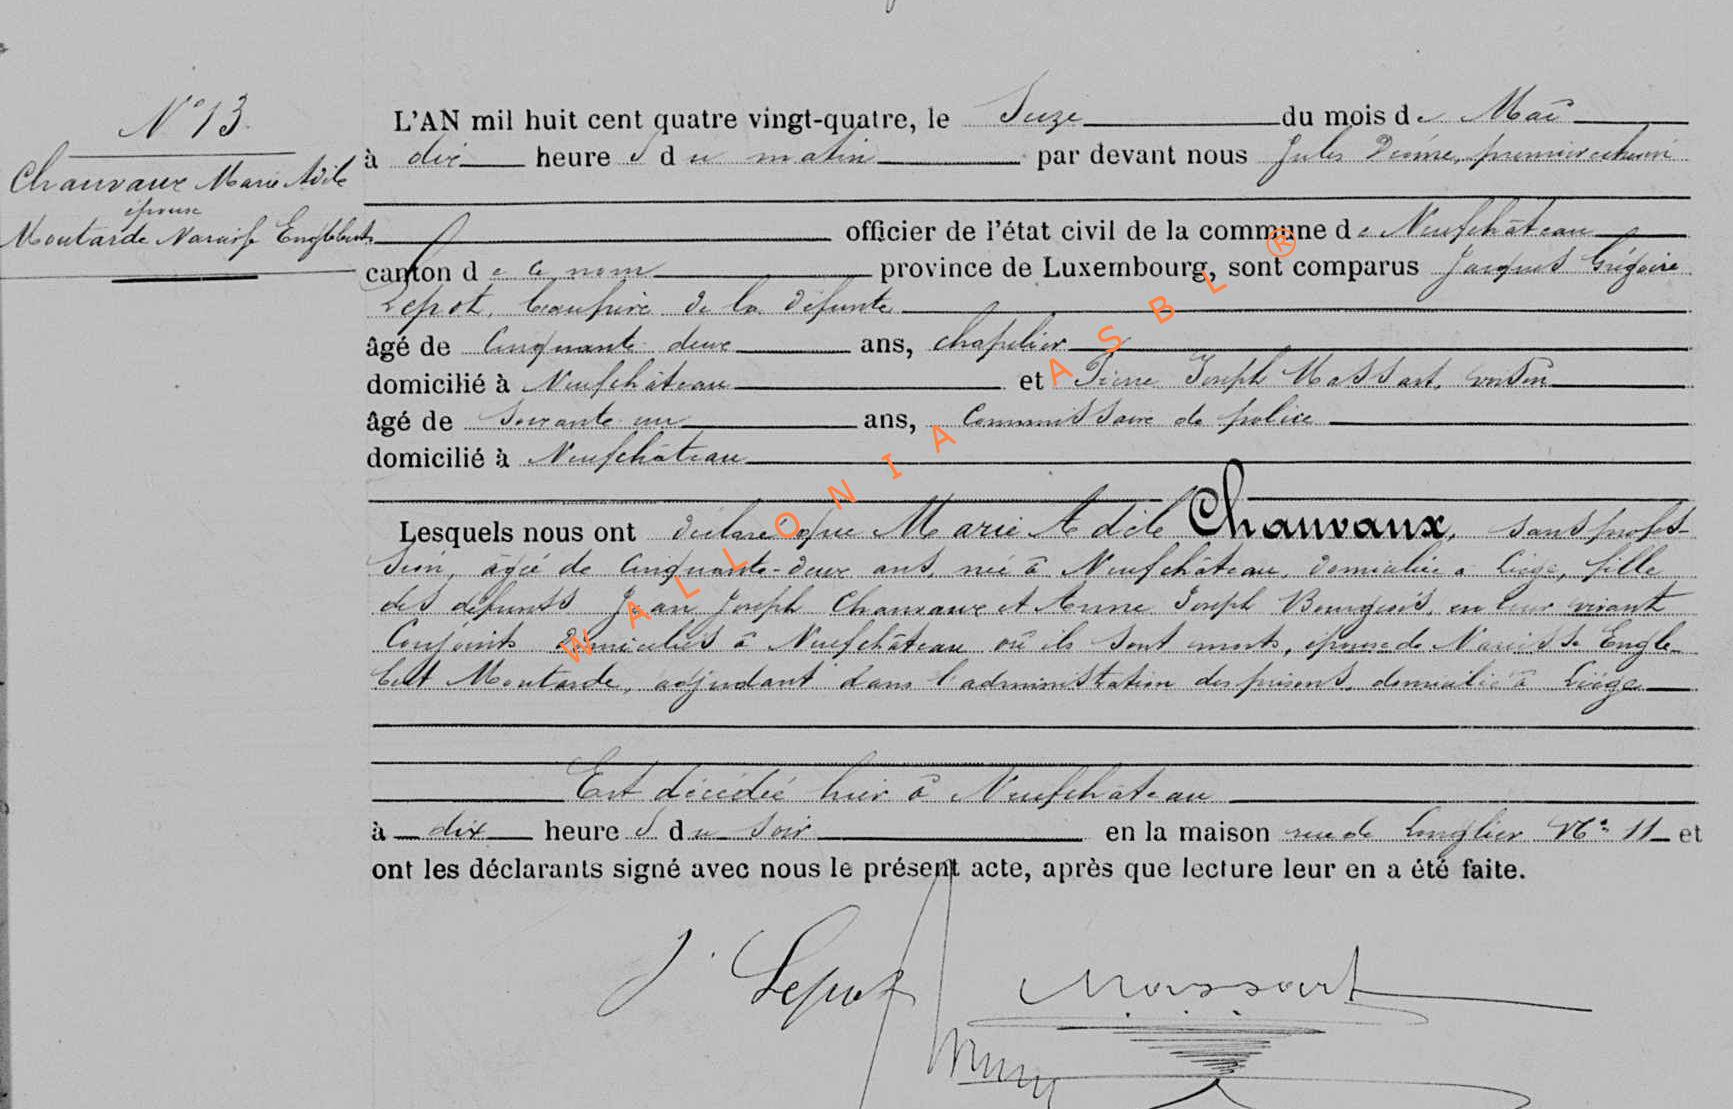 N° 13.
Chauvaux Marie Adèle
épouse
Moutarde Narcisse Englebert
L'AN mil huit cent quatre vingt-quatre, le Seize du mois de Mai
à dix heures du matin par devant nous Jules premier échevin
officier de l'état civil de la commune de Neufchâteau
canton de ce nom province de Luxembourg, sont comparus Jacques Grégoire
Lepot, beaufrère de la défunte
âgé de cinquante deux ans, chapelier
domicilié à Neufchâteau et Pierre Joseph Massart, voisin
âgé de soixante un ans, Commissaire de police
domicilié à Neufchâteau
Lesquels nous ont déclaré que Marie Adèle Chauvaux, sans profes-
sion, âgée de cinquante-deux ans, née à Neufchâteau, domiciliée à Liège, fille
des défunts Jean Joseph Chauvaux et Anne Joseph Bourgeois, en leur vivant
Conjoints domiciliés à Neufchâteau où ils sont morts, épouse de Narcisse Engle-
bert Moutarde, adjudant dans l'administration des prisons, domicilié à Liège
Est décédée hier à Neufchâteau
à dix heures du soir en la maison rue de Longlier N° 11 et
ont les déclarants signé avec nous le présent acte, après que lecture leur en a été faite.
J. Lepot Massart
WALLONIA ASBL ®